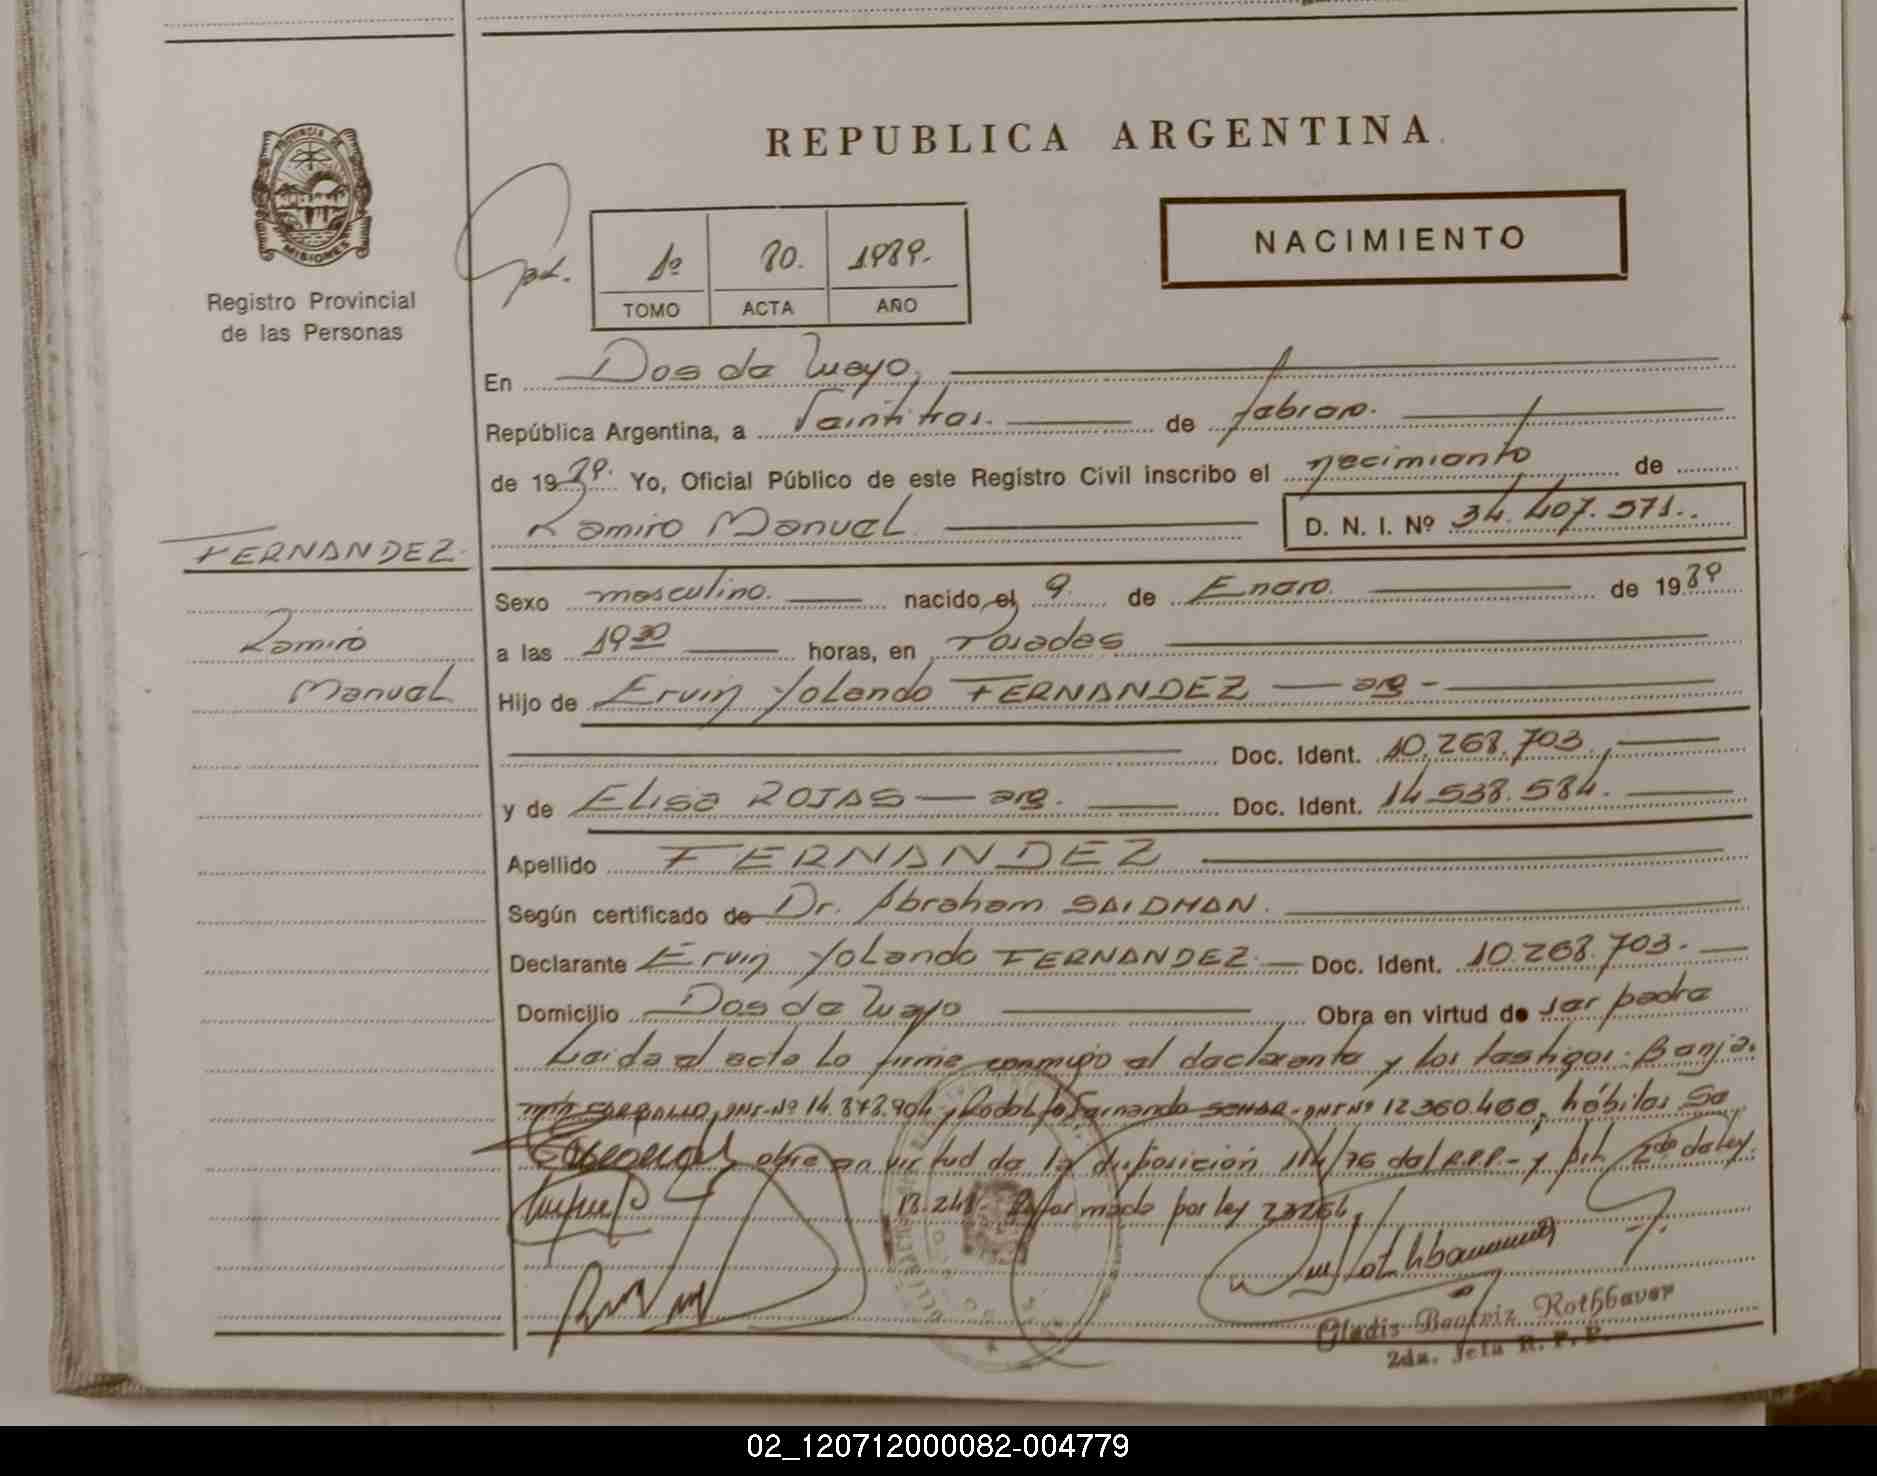 REPUBLICA ARGENTINA
PROVINCIA DE
MISIONES
Registro Provincial
de las Personas
1º 80. 1989.
TOMO ACTA AÑO
NACIMIENTO
En Dos de Mayo,
República Argentina, a Veintitres. de febrero.
de 1989. Yo, Oficial Público de este Registro Civil inscribo el nacimiento de
Ramiro Manuel D. N. I. Nº 34.407.571..
FERNANDEZ.
Ramiro
Manuel
Sexo masculino. nacido el 9 de Enero. de 1989
a las 19 30 horas, en Posadas
Hijo de Ervin Yolando FERNANDEZ — arg -
Doc. Ident. 10.268.703,
y de Elisa ROJAS — arg. Doc. Ident. 14.538.584.
Apellido FERNANDEZ
Según certificado de Dr. Abraham SAIDMAN.
Declarante Ervin Yolando FERNANDEZ. Doc. Ident. 10.268.703.
Domicilio Dos de Mayo Obra en virtud de ser padre
Leida el acta lo firma conmigo el declarante y los testigos: Benja-
min DNI-Nº 14.878.904 y Rodolfo Fernando DNI Nº 12.360.466, hábiles. Se
obre en virtud de la disposición 114/76 del R.P.P.- y 2do de ley
18.248- Reformado por ley 23264,
Gladis Beatriz Rothbauer
2da. Jefa R. P. P.
02_120712000082-004779